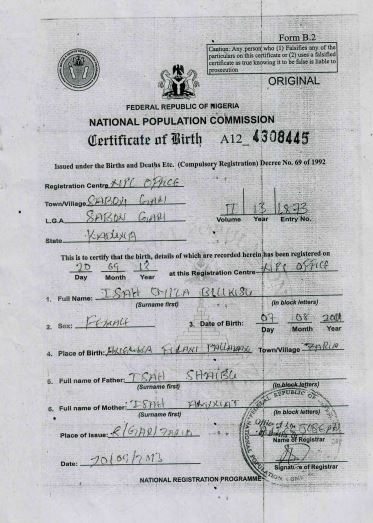 Form B.2
Caution: Any person who (1) Falsifies any of the
particulars on this certificate or (2) uses a falsified
certificate as true knowing it to be false is liable to
prosecution
ORIGINAL
FEDERAL REPUBLIC OF NIGERIA
NATIONAL POPULATION COMMISSION
Certificate of Birth A12_ 4308445
Issued under the Births and Deaths Etc. (Compulsory Registration) Decree No. 69 of 1992
Registration Centre NPC OFFICE
Town/Village SABON GARI
L.G.A. SABON GARI
II 13 1873
Volume Year Entry No.
State KADUNA
This is to certify that the birth, details of which are recorded herein has been registered on
20 09 at this Registration Centre NPC OFFICE
Day Month Year
1. Full Name: ISAH BILIKISU
(Surname first) (in block letters)
2. Sex: FEMALE 3. Date of Birth: 07 08
Day Month Year
4. Place of Birth: Town/Village ZARIA
5. Full name of Father: ISAH SHAIBU
(Surname first) (in block letters)
6. Full name of Mother: ISAH
(Surname first) (in block letters)
Place of Issue: S/GARI ZARIA
Name of Registrar
Date: 20/09/2013
Signature of Registrar
NATIONAL REGISTRATION PROGRAMME